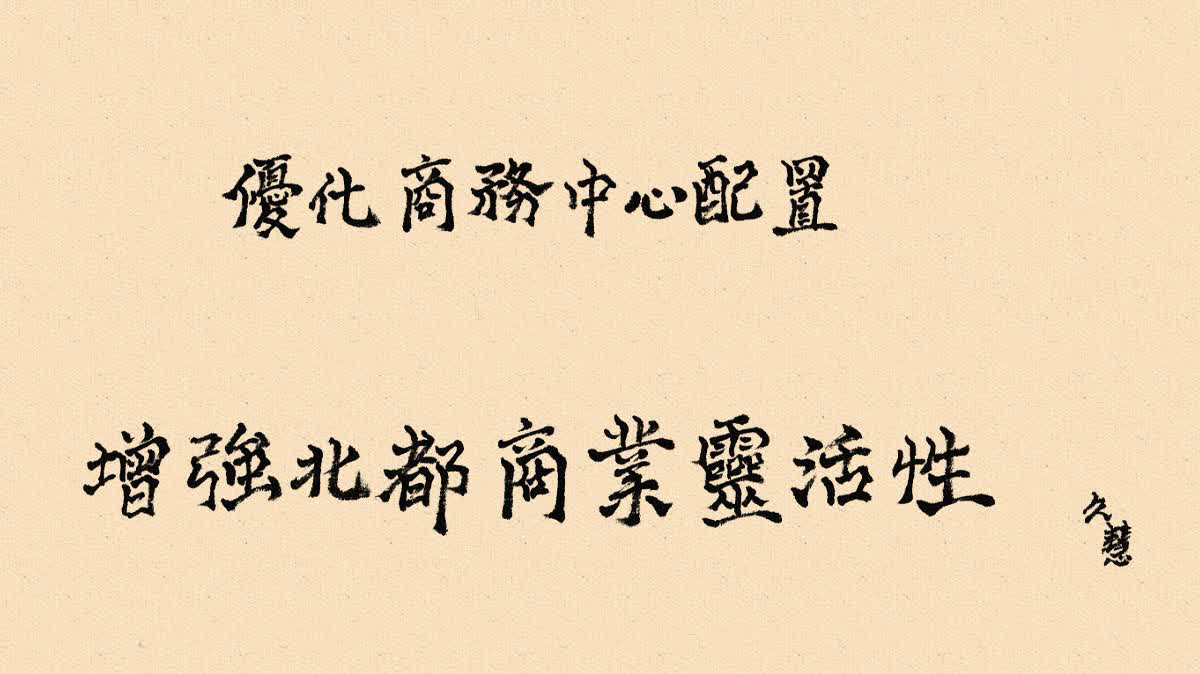 優化商務中心配置
增強北都商業靈活性
久慧